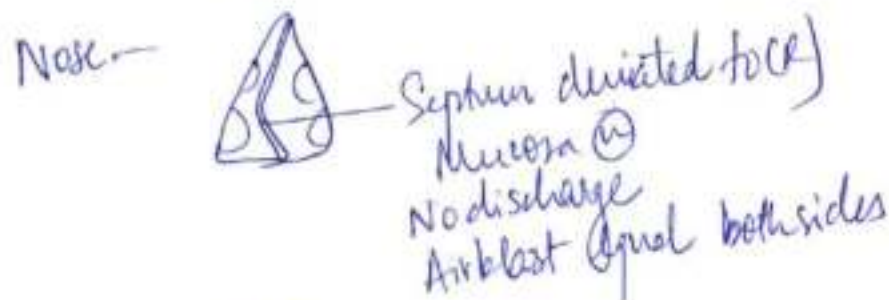 Nose.-
Septum deviated to (R)
Mucosa (N)
No discharge
Air blast equal both sides